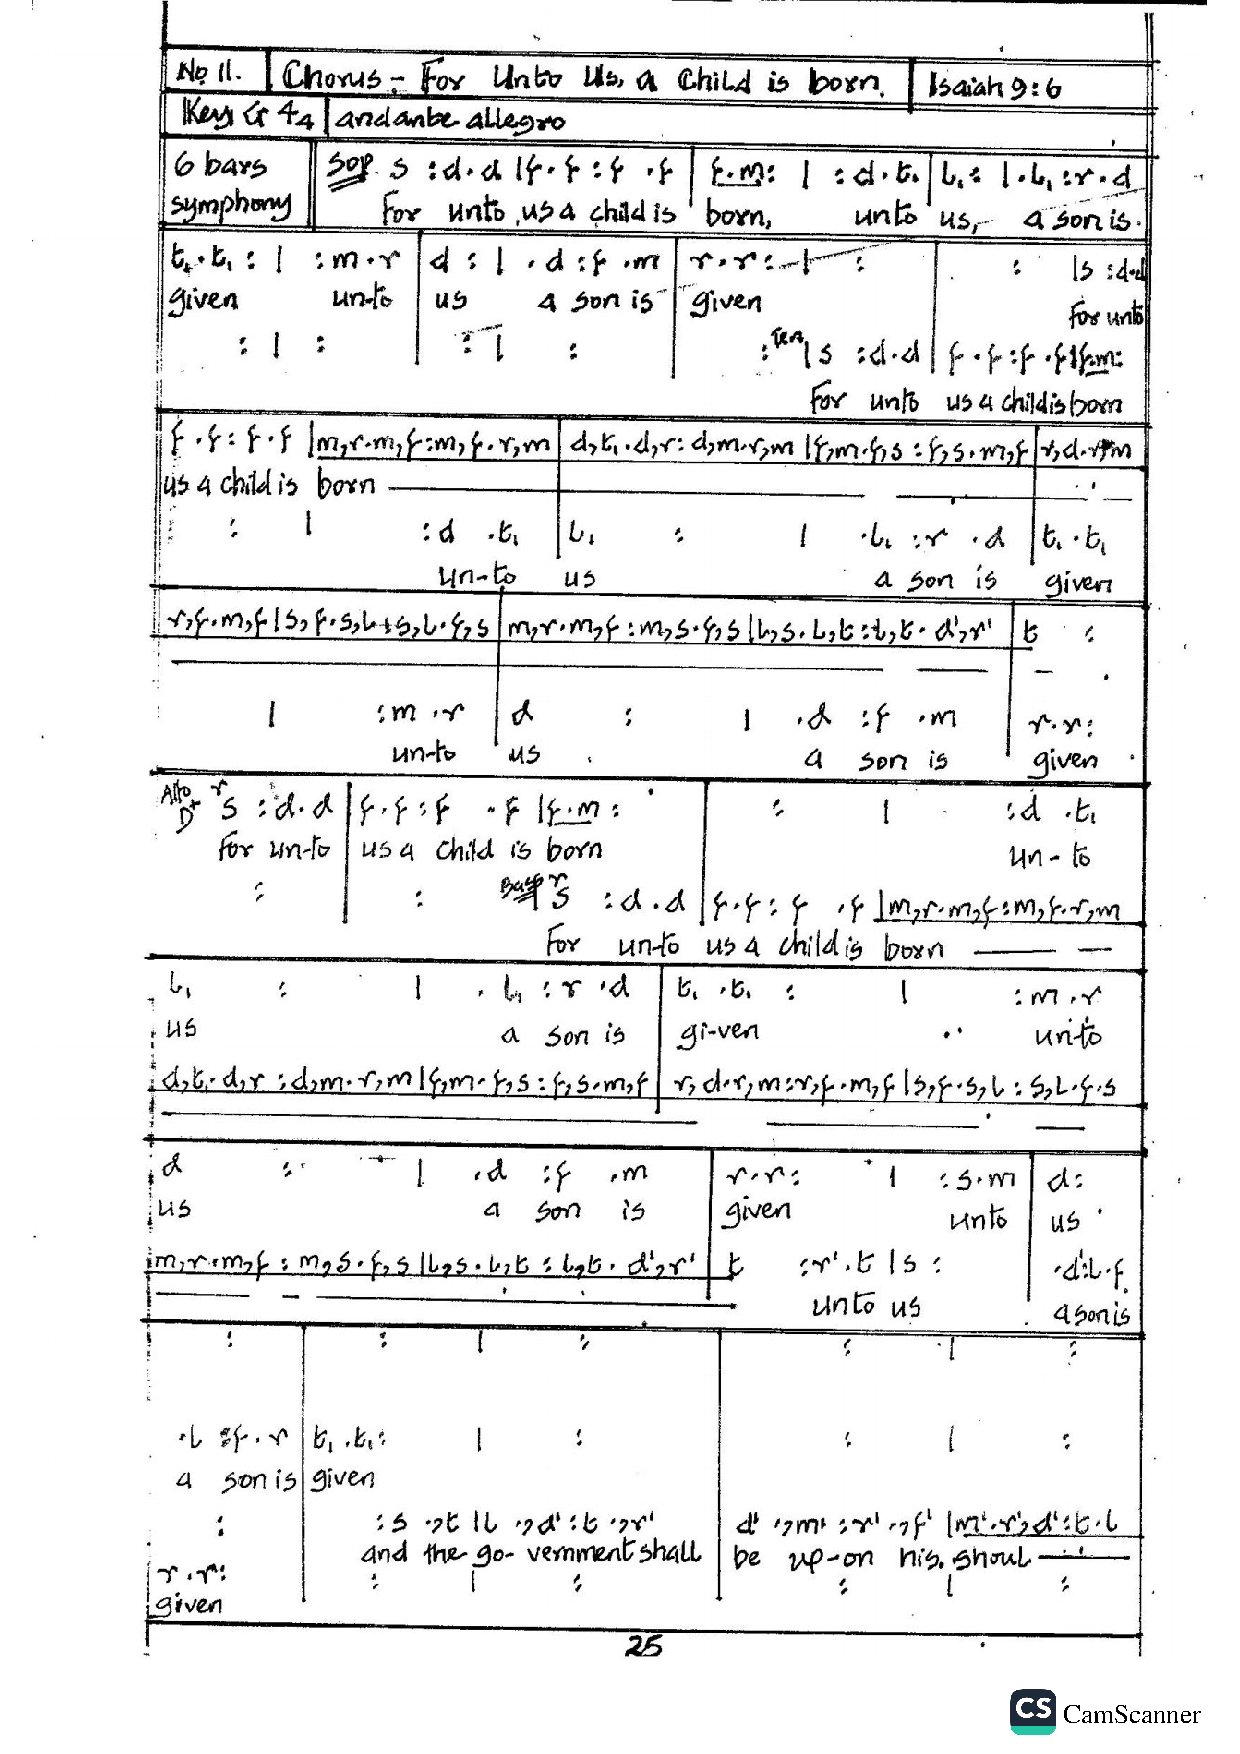 No 11. Chorus - For Unto Us, a Child is born. Isaiah 9:6
Key G 4/4 andante allegro
6 bars Sop s :d.d |f.f :f .f | f.m: | :d.t₁ | l₁: |.l₁ :r.d
symphony For unto us a child is born, unto us, a son is.
t₁.t₁ : | :m.r | d : | .d :f .m | r.r: - | : | : |s :d.d
given un-to us a son is given
For unto
: | : | : | : | : Ten |s :d.d | f.f :f .f |f.m:
For unto us a child is born
f .f : f .f |m,r.m,f :m,f.r,m | d,t₁.d,r : d,m.r,m |f,m.f,s : f,s.m,f | r,d.r,m
us a child is born
: | :d .t₁ | l₁ : | .l₁ :r .d | t₁ .t₁
un-to us a son is given
r,f.m,f |s,f.s,l :s,l.f,s | m,r.m,f :m,s.f,s |l,s.l,t :l,t.d',r' | t :
| :m .r | d : | .d :f .m | r.r:
un-to us a son is given
Alto s :d.d | f.f :f .f |f.m: | : | :d .t₁
For un-to us a child is born un-to
: | : Bass s :d.d | f.f : f .f |m,r.m,f :m,f.r,m
For un-to us a child is born
l₁ : | .l₁ :r .d | t₁ .t₁ : | :m.r
us a son is gi-ven unto
d,t₁.d,r :d,m.r,m |f,m.f,s : f,s.m,f | r,d.r,m :r,f.m,f |s,f.s,l : s,l.f.s
d : | .d :f .m | r.r: | :s.m | d:
us a son is given unto us
m,r.m,f : m,s.f,s |l,s.l,t : l,t.d',r' | t :r'.t |s : | .d':l.f
unto us a son is
: | : | : | : | :
.l :f.r | t₁ .t₁: | : | : | :
a son is given
: | :s .,t |l .,d' :t .,r' | d' .,m' :r' .,f' |m'.r',d' :t.l
and the go-vernment shall be up-on his shoul
r.r: | : | : | : | :
given
25
CS CamScanner